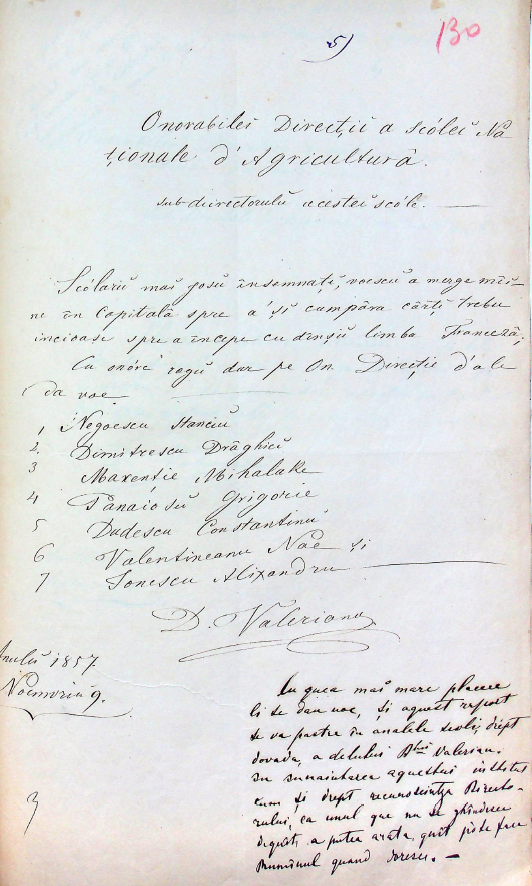 130
5)
Onorabilei Direcții a scólei Na
ționale d'Agricultură.
sub directorulŭ acestei scóle.
Scólariĭ maĭ josŭ însemnațĭ, voescŭ a merge mâĭ-
ne în Capitală spre a'șĭ cumpăra cărțĭ trebu
incioase spre a începe cu dînșiĭ limba Franceză;
Cu onóre rogŭ dar pe On. Direcție d'a le
da voe.
1 Negoescu Stanciŭ
2. Dimitrescu Drăghicĭ
3 Maxenție Mihalake
4 Panaiosŭ Grigorie
5 Dudescu Constantinŭ
6 Valentineanu Noe și
7 Ionescu Alixandru
D. Valerianu
Anulŭ 1857
Noemvrie 9.
Cu quea maĭ mare placere
li se dau voe, și aquest raport
se va pastra în analele scolii, drept
dovada, a dlui Valerian.
su inaintarea aquestui institut
cum și drept recunoscinția Directo-
rului, ca unul que nu se
a putea arata, quât póte face
Rumînul quand voresce. —
3